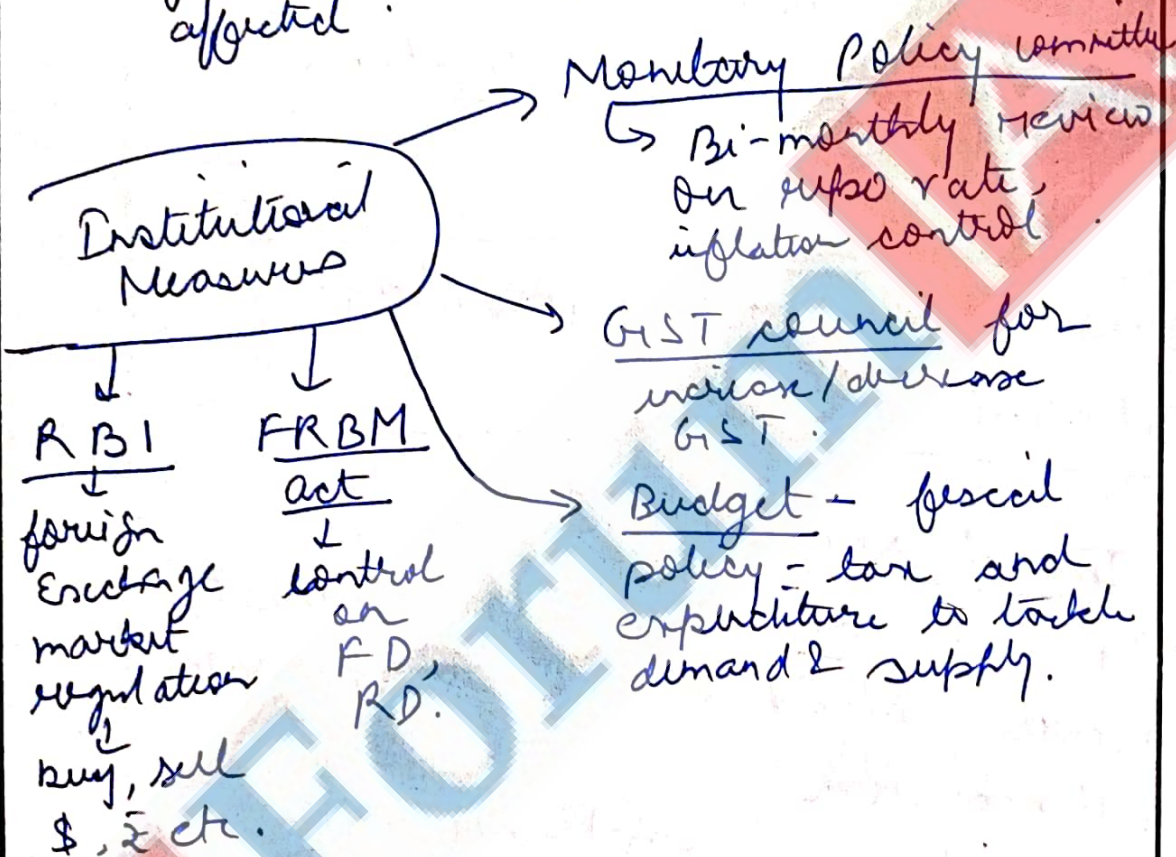 affected.
Institutional
Measures
Monetary Policy Committee
Bi-monthly review
on repo rate,
inflation control.
GST council for
increase/decrease
GST.
Budget - fiscal
policy - tax and
expenditure to tackle
demand & supply.
RBI
foreign
Exchange
market
regulation
buy, sell
$, ₹ etc.
FRBM
act
control
on
FD,
RD.
Forum IA